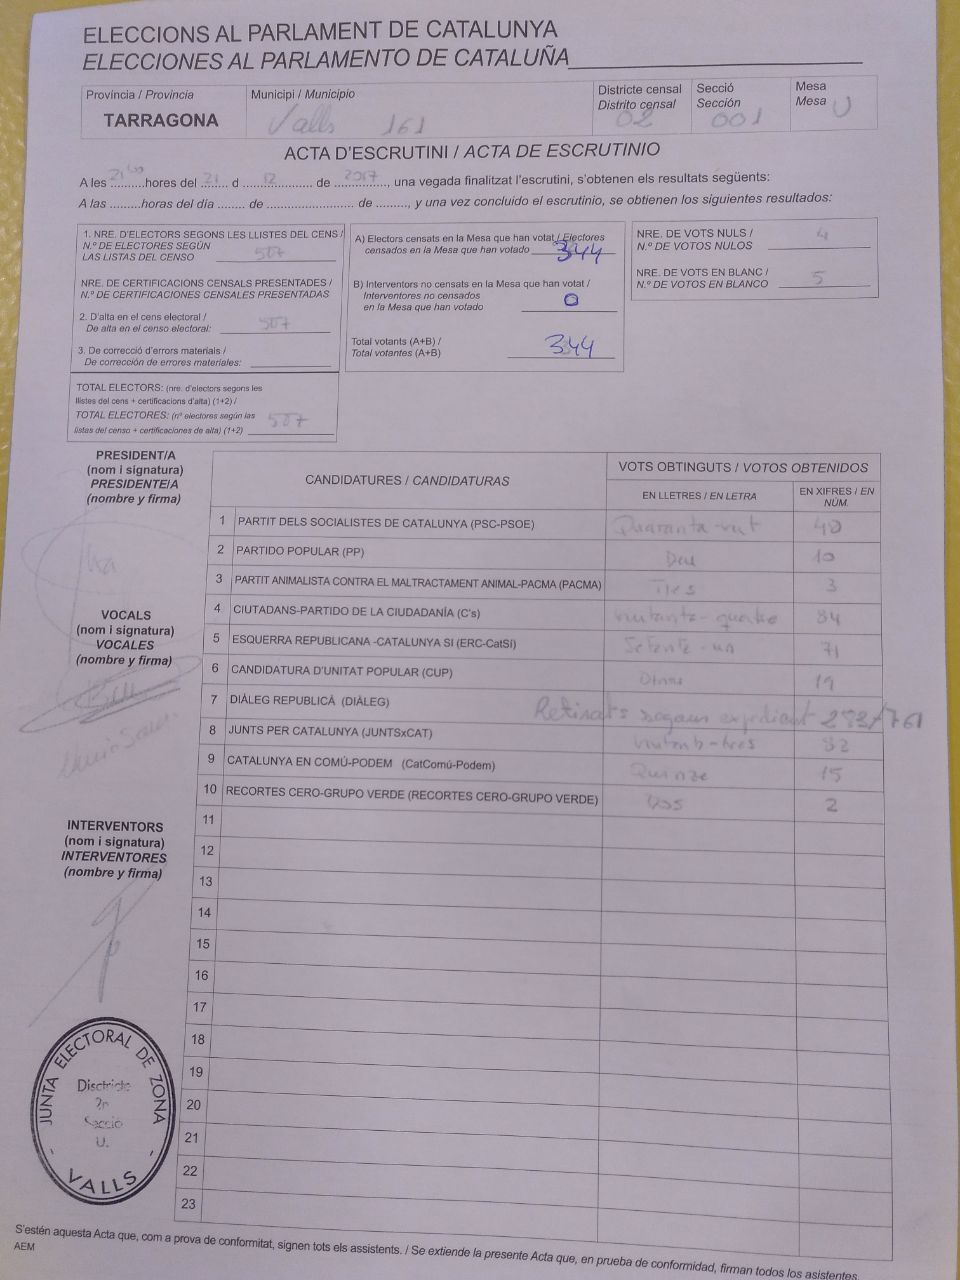 ELECCIONS AL PARLAMENT DE CATALUNYA
ELECCIONES AL PARLAMENTO DE CATALUÑA
Província / Provincia
TARRAGONA
Municipi / Municipio
Valls 161
Districte censal
Distrito censal
02
Secció
Sección
001
Mesa
Mesa U
ACTA D'ESCRUTINI / ACTA DE ESCRUTINIO
A les ..........hores del 21 d 12 de 2017, una vegada finalitzat l'escrutini, s'obtenen els resultats següents:
A las .........horas del día ....... de ......................... de ........., y una vez concluido el escrutinio, se obtienen los siguientes resultados:
1. NRE. D'ELECTORS SEGONS LES LLISTES DEL CENS /
N.º DE ELECTORES SEGÚN
LAS LISTAS DEL CENSO 507
NRE. DE CERTIFICACIONS CENSALS PRESENTADES /
N.º DE CERTIFICACIONES CENSALES PRESENTADAS
2. D'alta en el cens electoral /
De alta en el censo electoral: 507
3. De correcció d'errors materials /
De corrección de errores materiales:
TOTAL ELECTORS: (nre. d'electors segons les
llistes del cens + certificacions d'alta) (1+2) /
TOTAL ELECTORES: (nº electores según las
listas del censo + certificaciones de alta) (1+2) 507
A) Electors censats en la Mesa que han votat / Electores
censados en la Mesa que han votado 344
B) Interventors no censats en la Mesa que han votat /
Interventores no censados
en la Mesa que han votado 0
Total votants (A+B) /
Total votantes (A+B) 344
NRE. DE VOTS NULS /
N.º DE VOTOS NULOS 4
NRE. DE VOTS EN BLANC /
N.º DE VOTOS EN BLANCO 5
PRESIDENT/A
(nom i signatura)
PRESIDENTE/A
(nombre y firma)
VOCALS
(nom i signatura)
VOCALES
(nombre y firma)
INTERVENTORS
(nom i signatura)
INTERVENTORES
(nombre y firma)
CANDIDATURES / CANDIDATURAS
VOTS OBTINGUTS / VOTOS OBTENIDOS
EN LLETRES / EN LETRA
EN XIFRES / EN NÚM.
1 PARTIT DELS SOCIALISTES DE CATALUNYA (PSC-PSOE) Quaranta-vuit 48
2 PARTIDO POPULAR (PP) Deu 10
3 PARTIT ANIMALISTA CONTRA EL MALTRACTAMENT ANIMAL-PACMA (PACMA) Tres 3
4 CIUTADANS-PARTIDO DE LA CIUDADANÍA (C's) Vuitanta-quatre 84
5 ESQUERRA REPUBLICANA -CATALUNYA SÍ (ERC-CatSí) Setenta-un 71
6 CANDIDATURA D'UNITAT POPULAR (CUP) 19
7 DIÀLEG REPUBLICÀ (DIÀLEG) Retirats segons expedient 293/761
8 JUNTS PER CATALUNYA (JUNTSxCAT)
9 CATALUNYA EN COMÚ-PODEM (CatComú-Podem) Quinze 15
10 RECORTES CERO-GRUPO VERDE (RECORTES CERO-GRUPO VERDE) Dos 2
11
12
13
14
15
16
17
18
19
20
21
22
23
JUNTA ELECTORAL DE ZONA
Districte
2n
Secció
U.
- VALLS -
S'estén aquesta Acta que, com a prova de conformitat, signen tots els assistents. / Se extiende la presente Acta que, en prueba de conformidad, firman todos los asistentes.
AEM